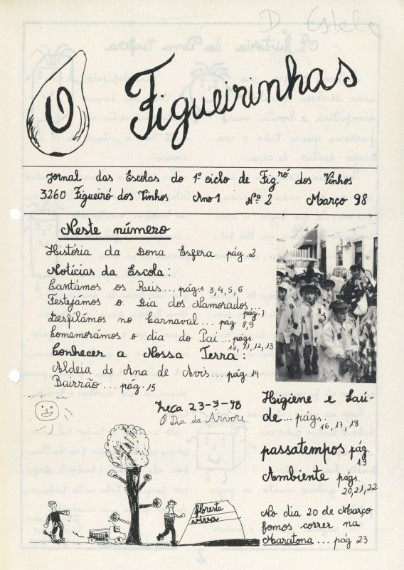 D. Estela
O Figueirinhas
Jornal das Escolas do 1º ciclo de Fig.ró dos Vinhos
3260 Figueiró dos Vinhos Ano 1 Nº 2 Março 98
Neste número
História da Dona Esfera pág. 2
Notícias da Escola:
Cantámos os Reis... pág. 3, 4, 5, 6
Festejámos o Dia dos Namorados... pág. 7
Desfilámos no Carnaval... pág. 8, 9
Comemorámos o dia do Pai... págs. 10, 11, 12, 13
Conhecer a Nossa Terra:
Aldeia de Ana de Avis... pág. 14
Bairrão... pág. 15
23-3-98
O Dia da Árvore
floresta
Higiene e Saú-
de... págs.
16, 17, 18
passatempos pág
19
Ambiente págs.
20, 21, 22
No dia 20 de Março
fomos correr na
Maratona... pág 23